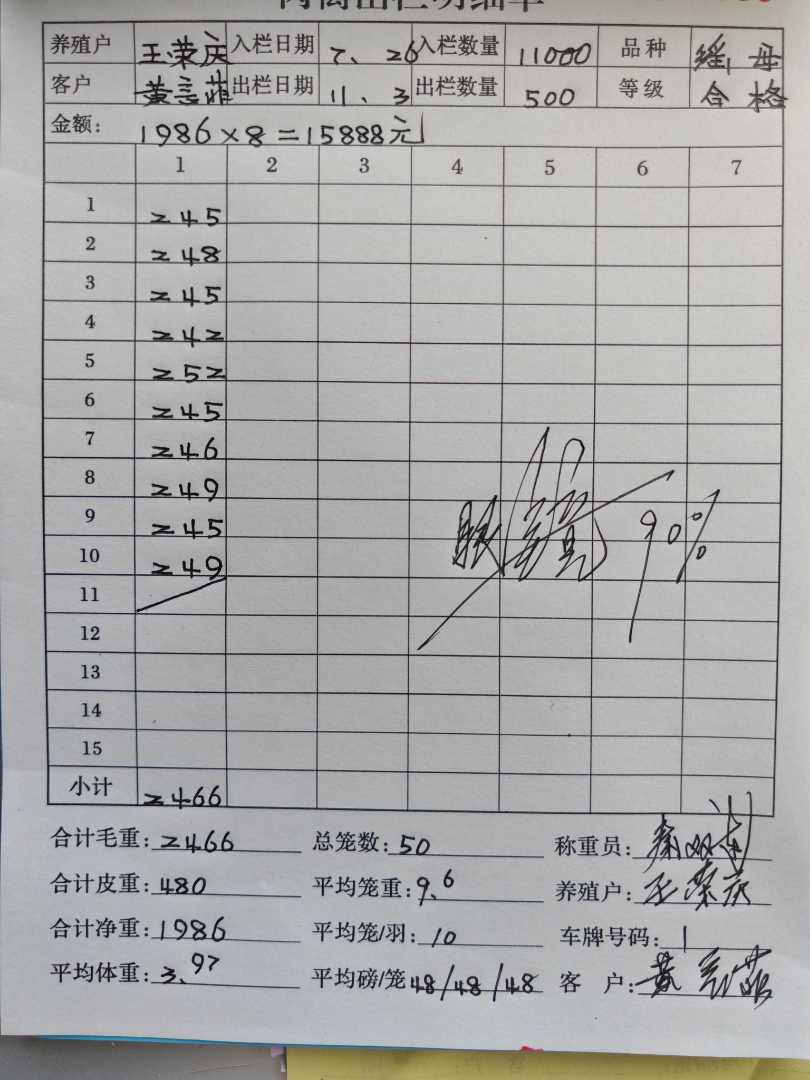 肉禽出栏明细单
养殖户 王荣庆 入栏日期 7、26 入栏数量 11000 品种 瑶母
客户 黄言菲 出栏日期 11、3 出栏数量 500 等级 合格
金额: 1986×8=15888元
1 2 3 4 5 6 7
1 245
2 248
3 245
4 242
5 252
6 245
7 246
8 249
9 245
10 249
11
12
13
14
15
90%
小计 2466
合计毛重: 2466 总笼数: 50 称重员:
合计皮重: 480 平均笼重: 9.6 养殖户: 王荣庆
合计净重: 1986 平均笼/羽: 10 车牌号码: 1
平均体重: 3.97 平均磅/笼 48/48/48 客 户: 黄言菲